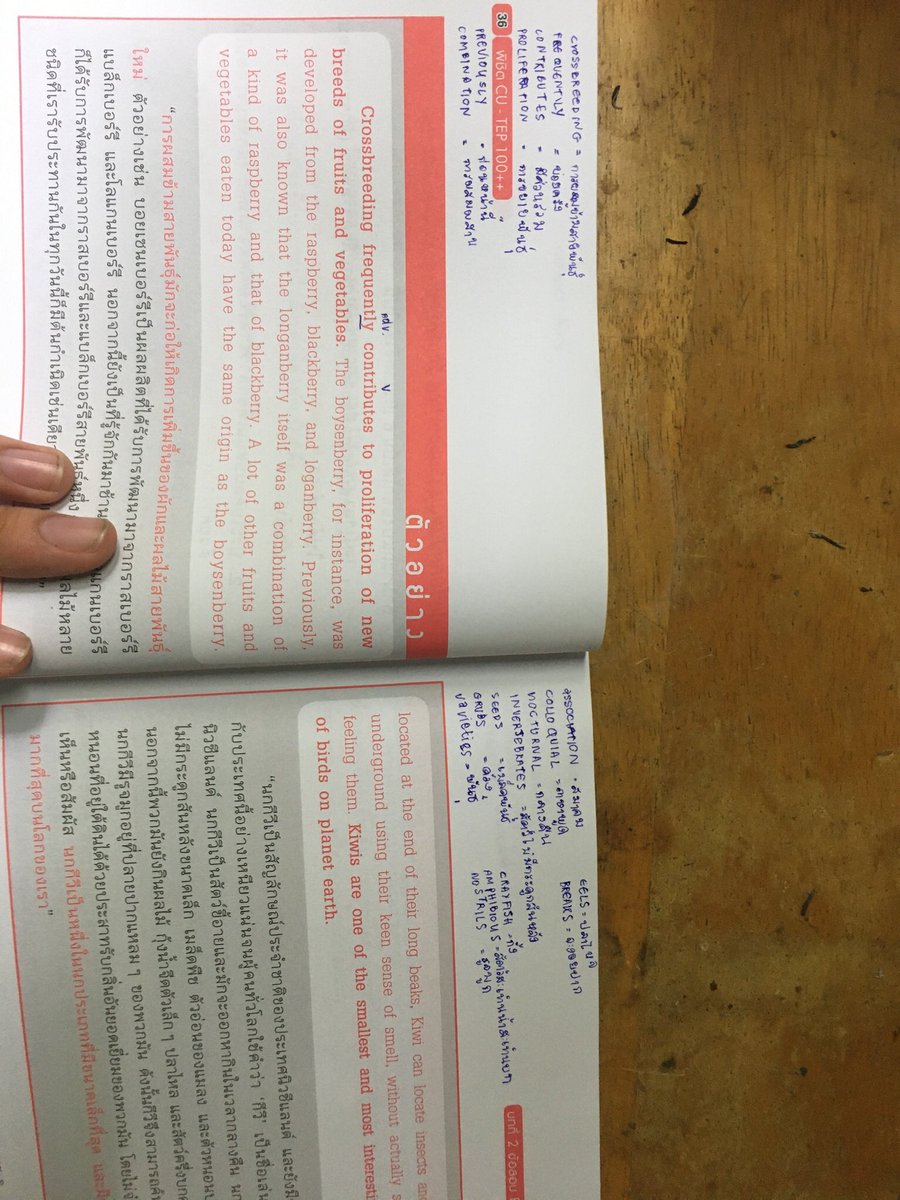 CROSSBREEDING = การผสมข้ามสายพันธุ์
FREQUENTLY = บ่อยครั้ง
CONTRIBUTES = มีส่วนร่วม
PROLIFERATION = การขยายพันธุ์
36 พิชิต CU - TEP 100++
PREVIOUSLY = ก่อนหน้านี้
COMBINATION = การผสมผสาน
ตัวอย่าง
adv. v
Crossbreeding frequently contributes to proliferation of new
breeds of fruits and vegetables. The boysenberry, for instance, was
developed from the raspberry, blackberry, and loganberry. Previously,
it was also known that the longanberry itself was a combination of
a kind of raspberry and that of blackberry. A lot of other fruits and
vegetables eaten today have the same origin as the boysenberry.
“การผสมข้ามสายพันธุ์มักจะก่อให้เกิดการเพิ่มขึ้นของผักและผลไม้สายพันธุ์
ใหม่ ตัวอย่างเช่น บอยเซนเบอร์รีเป็นผลผลิตที่ได้รับการพัฒนามาจากราสเบอร์รี
แบล็กเบอร์รี และโลแกนเบอร์รี นอกจากนี้ยังเป็นที่รู้จักกันมาช้านาน
ก็ได้รับการพัฒนามาจากราสเบอร์รีและแบล็กเบอร์รีสายพันธุ์หนึ่ง
ชนิดที่เรารับประทานกันในทุกวันนี้ก็มีต้นกำเนิดเช่นเดีย
ASSOCIATION = สมาคม
COLLOQUIAL = ภาษาพูด
NOCTURNAL = กลางคืน
INVERTEBRATES = สัตว์ไม่มีกระดูกสันหลัง
SEEDS = เมล็ดพันธุ์
GRUBS = ด้วง
varieties = พันธุ์
EELS = ปลาไหล
BREAKS = จะงอยปาก
CRAYFISH = กุ้ง
AMPHIBIOUS = สัตว์สะเทินน้ำสะเทินบก
NOSTRILS = รูจมูก
บทที่ 2 ข้อสอบ
located at the end of their long beaks, Kiwi can locate insects and
underground using their keen sense of smell, without actually s
feeling them. Kiwis are one of the smallest and most interesti
of birds on planet earth.
“นกกีวีเป็นสัญลักษณ์ประจำชาติของประเทศนิวซีแลนด์ และยังมี
กับประเทศนี้อย่างเหนียวแน่นจนผู้คนทั่วโลกใช้คำว่า ‘กีวี’ เป็นชื่อเล่น
นิวซีแลนด์ นกกีวีเป็นสัตว์ขี้อายและมักจะออกหากินในเวลากลางคืน นก
ไม่มีกระดูกสันหลังขนาดเล็ก เมล็ดพืช ตัวอ่อนของแมลง และตัวหนอน
นอกจากนี้พวกมันยังกินผลไม้ กุ้งน้ำจืดตัวเล็ก ๆ ปลาไหล และสัตว์ครึ่งบก
นกกีวีมีรูจมูกอยู่ที่ปลายปากแหลม ๆ ของพวกมัน ดังนั้นกีวีจึงสามารถค้น
หนอนที่อยู่ใต้ดินได้ด้วยประสาทรับกลิ่นอันยอดเยี่ยมของพวกมัน โดยไม่จำ
เห็นหรือสัมผัส นกกีวีเป็นหนึ่งในนกประเภทที่มีขนาดเล็กที่สุด และมี
มากที่สุดบนโลกของเรา”